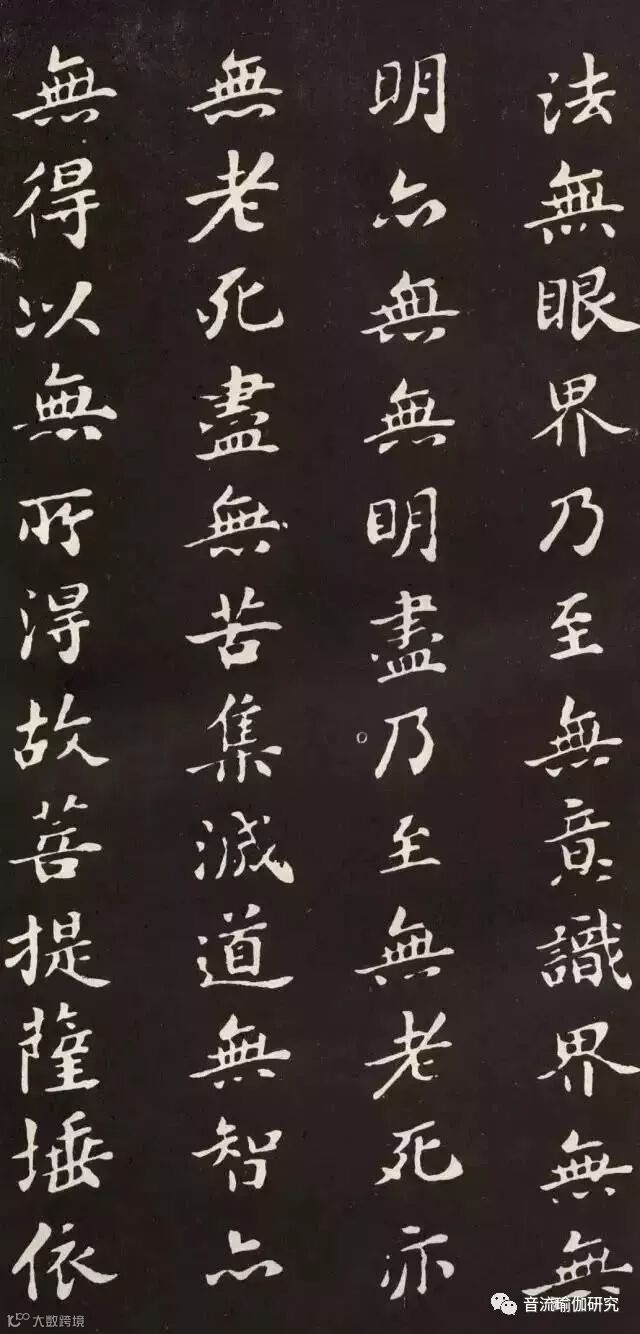 法無眼界乃至無意識界無無
明亦無無明盡乃至無老死亦
無老死盡無苦集滅道無智亦
無得以無所得故菩提薩埵依
音流瑜伽研究
大数跨境